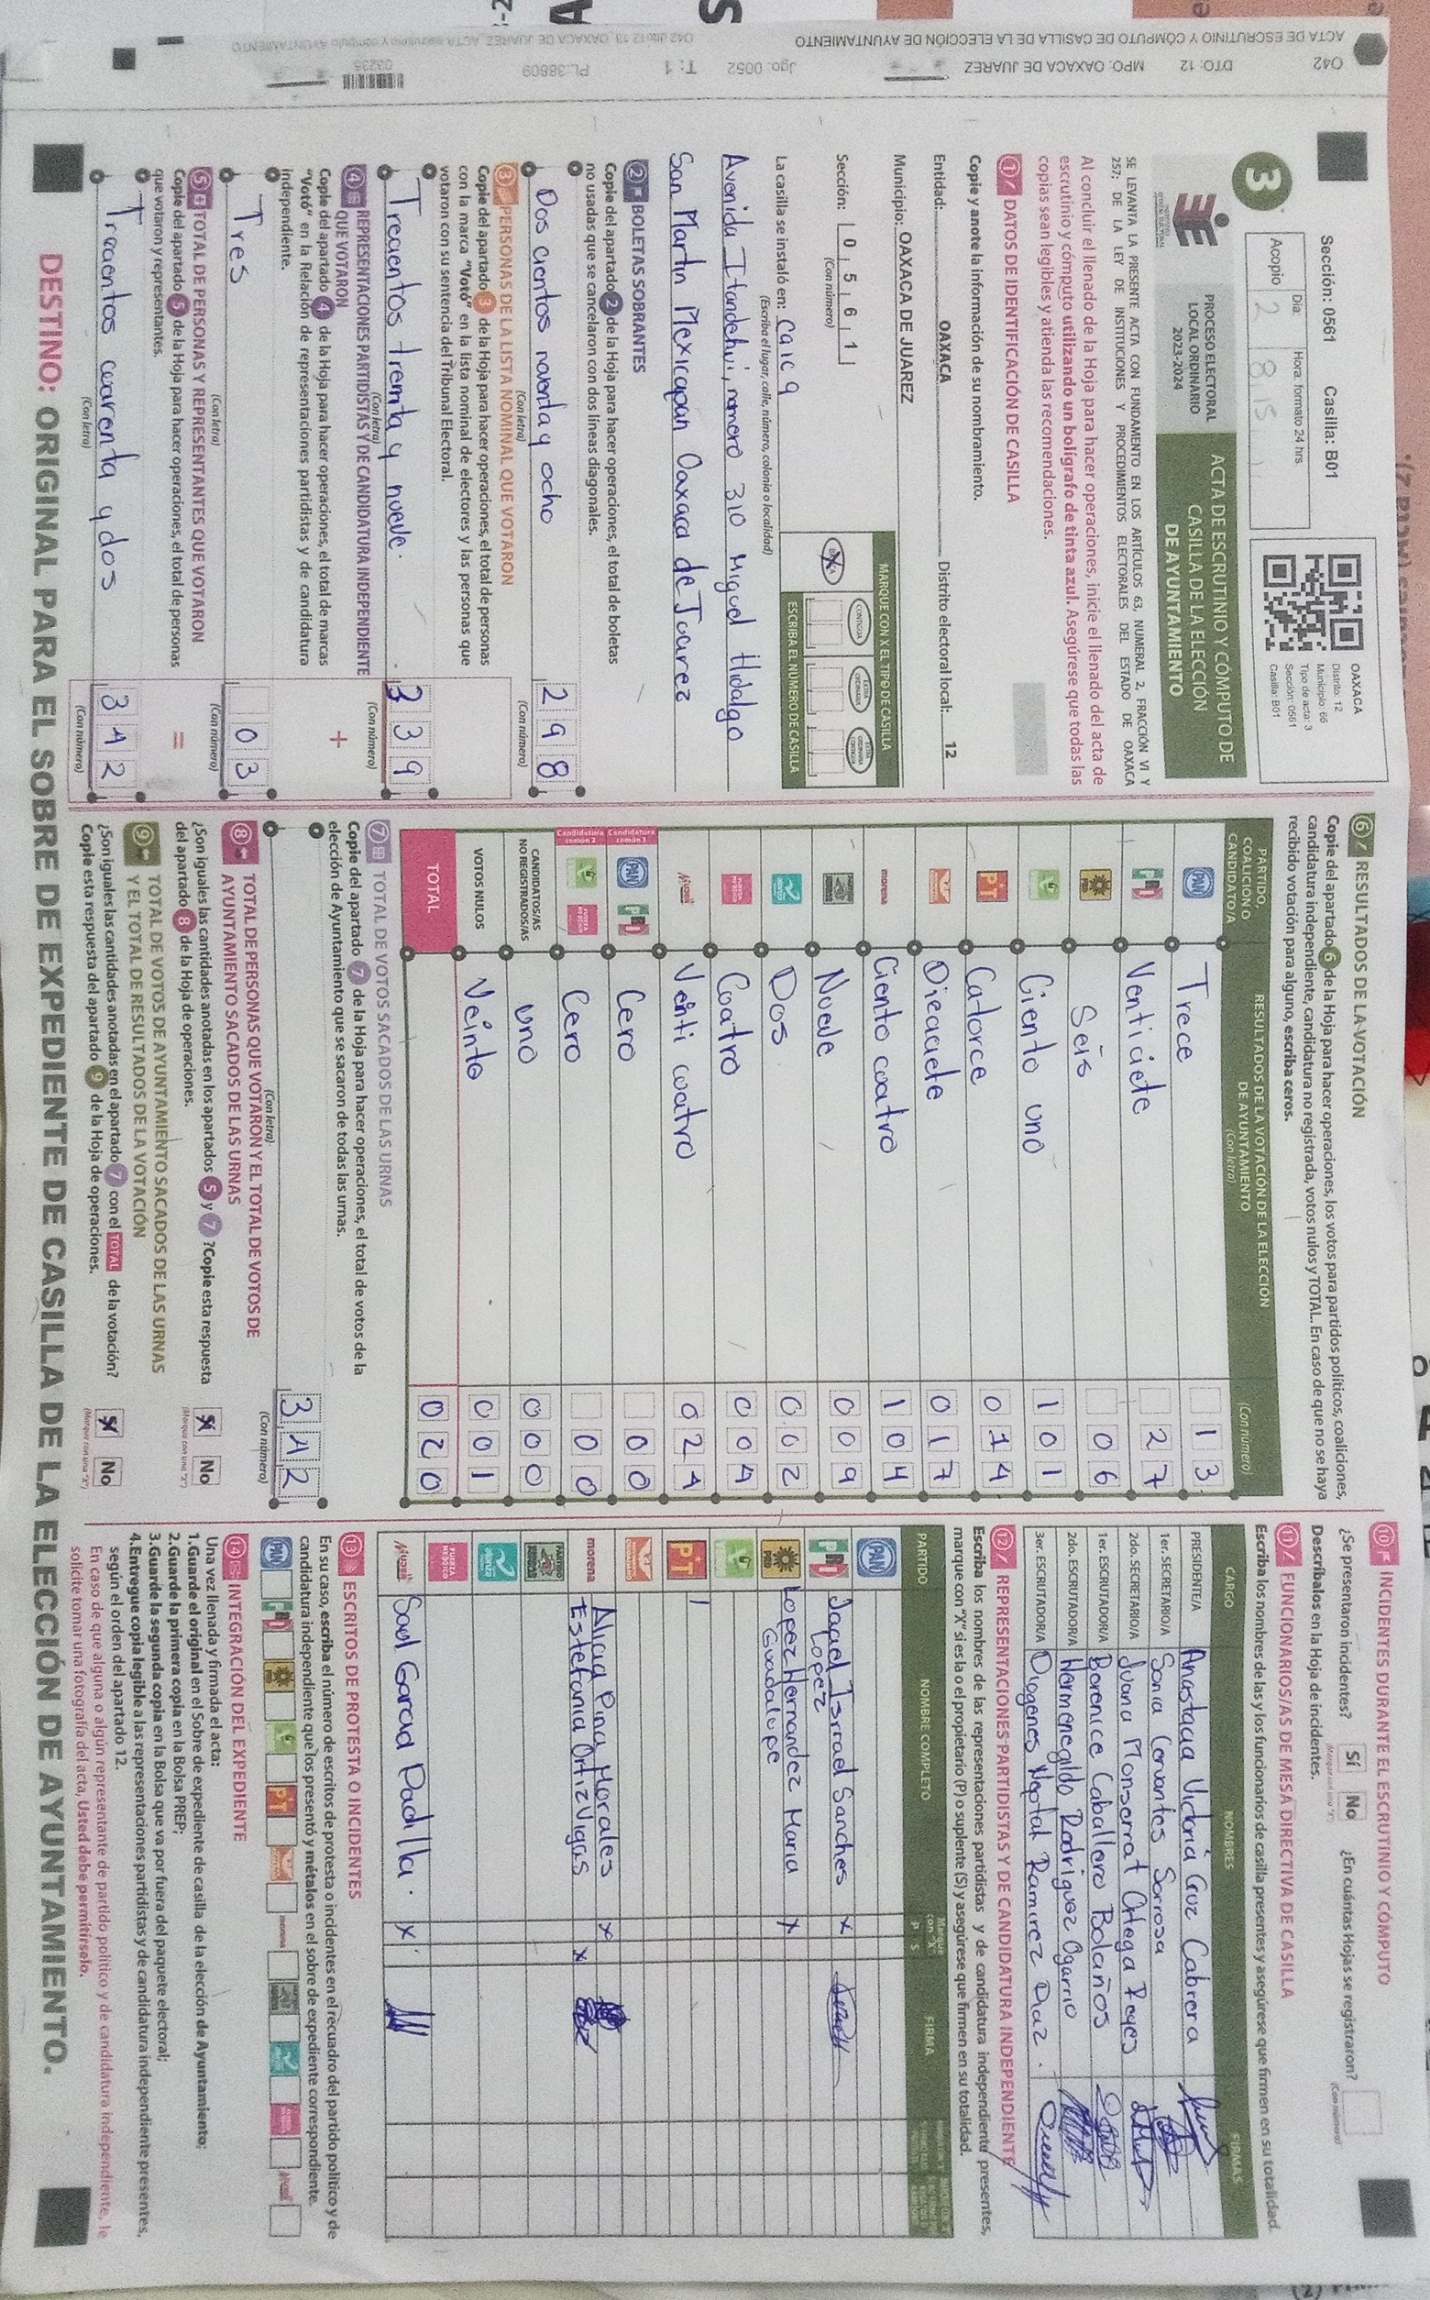 042 DTO: 12 MPO: OAXACA DE JUAREZ Jgo: 0052 T: 1 PL: 38609 03235
ACTA DE ESCRUTINIO Y CÓMPUTO DE CASILLA DE LA ELECCIÓN DE AYUNTAMIENTO
Sección: 0561 Casilla: B01
3
Día: Hora: formato 24 hrs
Acopio 2 8 15
OAXACA
Distrito: 12
Municipio: 66
Tipo de acta: 3
Sección: 0561
Casilla: B01
PROCESO ELECTORAL
LOCAL ORDINARIO
2023-2024
ACTA DE ESCRUTINIO Y CÓMPUTO DE
CASILLA DE LA ELECCIÓN
DE AYUNTAMIENTO
SE LEVANTA LA PRESENTE ACTA CON FUNDAMENTO EN LOS ARTÍCULOS 63, NUMERAL 2, FRACCIÓN VI Y
257; DE LA LEY DE INSTITUCIONES Y PROCEDIMIENTOS ELECTORALES DEL ESTADO DE OAXACA
Al concluir el llenado de la Hoja para hacer operaciones, inicie el llenado del acta de
escrutinio y cómputo utilizando un bolígrafo de tinta azul. Asegúrese que todas las
copias sean legibles y atienda las recomendaciones.
1 DATOS DE IDENTIFICACIÓN DE CASILLA
Copie y anote la información de su nombramiento.
Entidad: OAXACA Distrito electoral local: 12
Municipio: OAXACA DE JUAREZ
Sección: 0 5 6 1
(Con número)
MARQUE CON X EL TIPO DE CASILLA
BÁSICA X CONTIGUA
ESCRIBA EL NÚMERO DE CASILLA
La casilla se instaló en: calc 9
(Escriba el lugar, calle, número, colonia o localidad)
Avenida Itandehui, número 310 Miguel Hidalgo
San Martin Mexicapan Oaxaca de Juarez
2 BOLETAS SOBRANTES
Copie del apartado 2 de la Hoja para hacer operaciones, el total de boletas
no usadas que se cancelaron con dos líneas diagonales.
Dos cientos noventa y ocho 2 9 8
(Con letra) (Con número)
3 PERSONAS DE LA LISTA NOMINAL QUE VOTARON
Copie del apartado 3 de la Hoja para hacer operaciones, el total de personas
con la marca "Votó" en la lista nominal de electores y las personas que
votaron con su sentencia del Tribunal Electoral.
Trecientos treinta y nueve. 3 3 9
(Con letra) (Con número)
4 REPRESENTACIONES PARTIDISTAS Y DE CANDIDATURA INDEPENDIENTE
QUE VOTARON
Copie del apartado 4 de la Hoja para hacer operaciones, el total de marcas
"Votó" en la Relación de representaciones partidistas y de candidatura
independiente.
+
Tres 0 3
(Con letra) (Con número)
5 TOTAL DE PERSONAS Y REPRESENTANTES QUE VOTARON
Copie del apartado 5 de la Hoja para hacer operaciones, el total de personas
que votaron y representantes.
=
Trecientos cuarenta y dos 3 4 2
(Con letra) (Con número)
6 RESULTADOS DE LA VOTACIÓN
Copie del apartado 6 de la Hoja para hacer operaciones, los votos para partidos políticos, coaliciones,
candidatura independiente, candidatura no registrada, votos nulos y TOTAL. En caso de que no se haya
recibido votación para alguno, escriba ceros.
PARTIDO, COALICIÓN O CANDIDATO/A
RESULTADOS DE LA VOTACIÓN DE LA ELECCIÓN
DE AYUNTAMIENTO
(Con letra) (Con número)
PAN Trece 1 3
PRI Venticiete 2 7
PRD Seis 0 6
Ciento uno 1 0 1
PT Catorce 0 1 4
Dieaciete 0 1 7
morena Ciento coatro 1 0 4
Nueve 0 0 9
Dos 0 0 2
Coatro 0 0 4
Venti coatro 0 2 4
Candidatura común 1 PAN PRI Cero 0 0
Candidatura común 2 Cero 0 0
CANDIDATOS/AS
NO REGISTRADOS/AS uno 0 0 0
VOTOS NULOS Veinte 0 0 1
TOTAL 0 2 0
7 TOTAL DE VOTOS SACADOS DE LAS URNAS
Copie del apartado 7 de la Hoja para hacer operaciones, el total de votos de la
elección de Ayuntamiento que se sacaron de todas las urnas.
3 4 2
(Con letra) (Con número)
8 TOTAL DE PERSONAS QUE VOTARON Y EL TOTAL DE VOTOS DE
AYUNTAMIENTO SACADOS DE LAS URNAS
¿Son iguales las cantidades anotadas en los apartados 5 y 7 ? Copie esta respuesta
del apartado 8 de la Hoja de operaciones.
Sí No
(Marque con una "X")
9 TOTAL DE VOTOS DE AYUNTAMIENTO SACADOS DE LAS URNAS
Y EL TOTAL DE RESULTADOS DE LA VOTACIÓN
¿Son iguales las cantidades anotadas en el apartado 7 con el TOTAL de la votación?
Copie esta respuesta del apartado 9 de la Hoja de operaciones.
Sí No
(Marque con una "X")
10 INCIDENTES DURANTE EL ESCRUTINIO Y CÓMPUTO
¿Se presentaron incidentes? Sí No ¿En cuántas Hojas se registraron?
(Marque con una "X") (Con número)
Descríbalos en la Hoja de incidentes.
11 FUNCIONARIOS/AS DE MESA DIRECTIVA DE CASILLA
Escriba los nombres de las y los funcionarios de casilla presentes y asegúrese que firmen en su totalidad.
CARGO NOMBRES FIRMAS
PRESIDENTE/A Anastacia Victoria Cruz Cabrera
1er. SECRETARIO/A Sonia Cervantes Sorrosa
2do. SECRETARIO/A Juana Monserrat Ortega Reyes
1er. ESCRUTADOR/A Berenice Caballero Bolaños
2do. ESCRUTADOR/A Hermenegildo Rodriguez Ogarrio
3er. ESCRUTADOR/A Diogenes Neptal Ramirez Diaz.
12 REPRESENTACIONES PARTIDISTAS Y DE CANDIDATURA INDEPENDIENTE
Escriba los nombres de las representaciones partidistas y de candidatura independiente presentes,
marque con "X" si es la o el propietario (P) o suplente (S) y asegúrese que firmen en su totalidad.
PARTIDO NOMBRE COMPLETO Marque con "X" P S FIRMA
PAN
PRI Jaciel Israel Sanches
Lopez X
PRD Lopez Hernandez Maria
Guadalupe X
PT
morena Alicia Pina Morales X
Estefania Ortiz Vigas X
FUERZA MÉXICO
Saol Garcia Padilla. X
13 ESCRITOS DE PROTESTA O INCIDENTES
En su caso, escriba el número de escritos de protesta o incidentes en el recuadro del partido político y de
candidatura independiente que los presentó y métalos en el sobre de expediente correspondiente.
14 INTEGRACIÓN DEL EXPEDIENTE
Una vez llenada y firmada el acta:
1.Guarde el original en el Sobre de expediente de casilla de la elección de Ayuntamiento;
2.Guarde la primera copia en la Bolsa PREP;
3.Guarde la segunda copia en la Bolsa que va por fuera del paquete electoral;
4.Entregue copia legible a las representaciones partidistas y de candidatura independiente presentes,
según el orden del apartado 12.
En caso de que alguna o algún representante de partido político y de candidatura independiente, le
solicite tomar una fotografía del acta, Usted debe permitírselo.
DESTINO: ORIGINAL PARA EL SOBRE DE EXPEDIENTE DE CASILLA DE LA ELECCIÓN DE AYUNTAMIENTO.